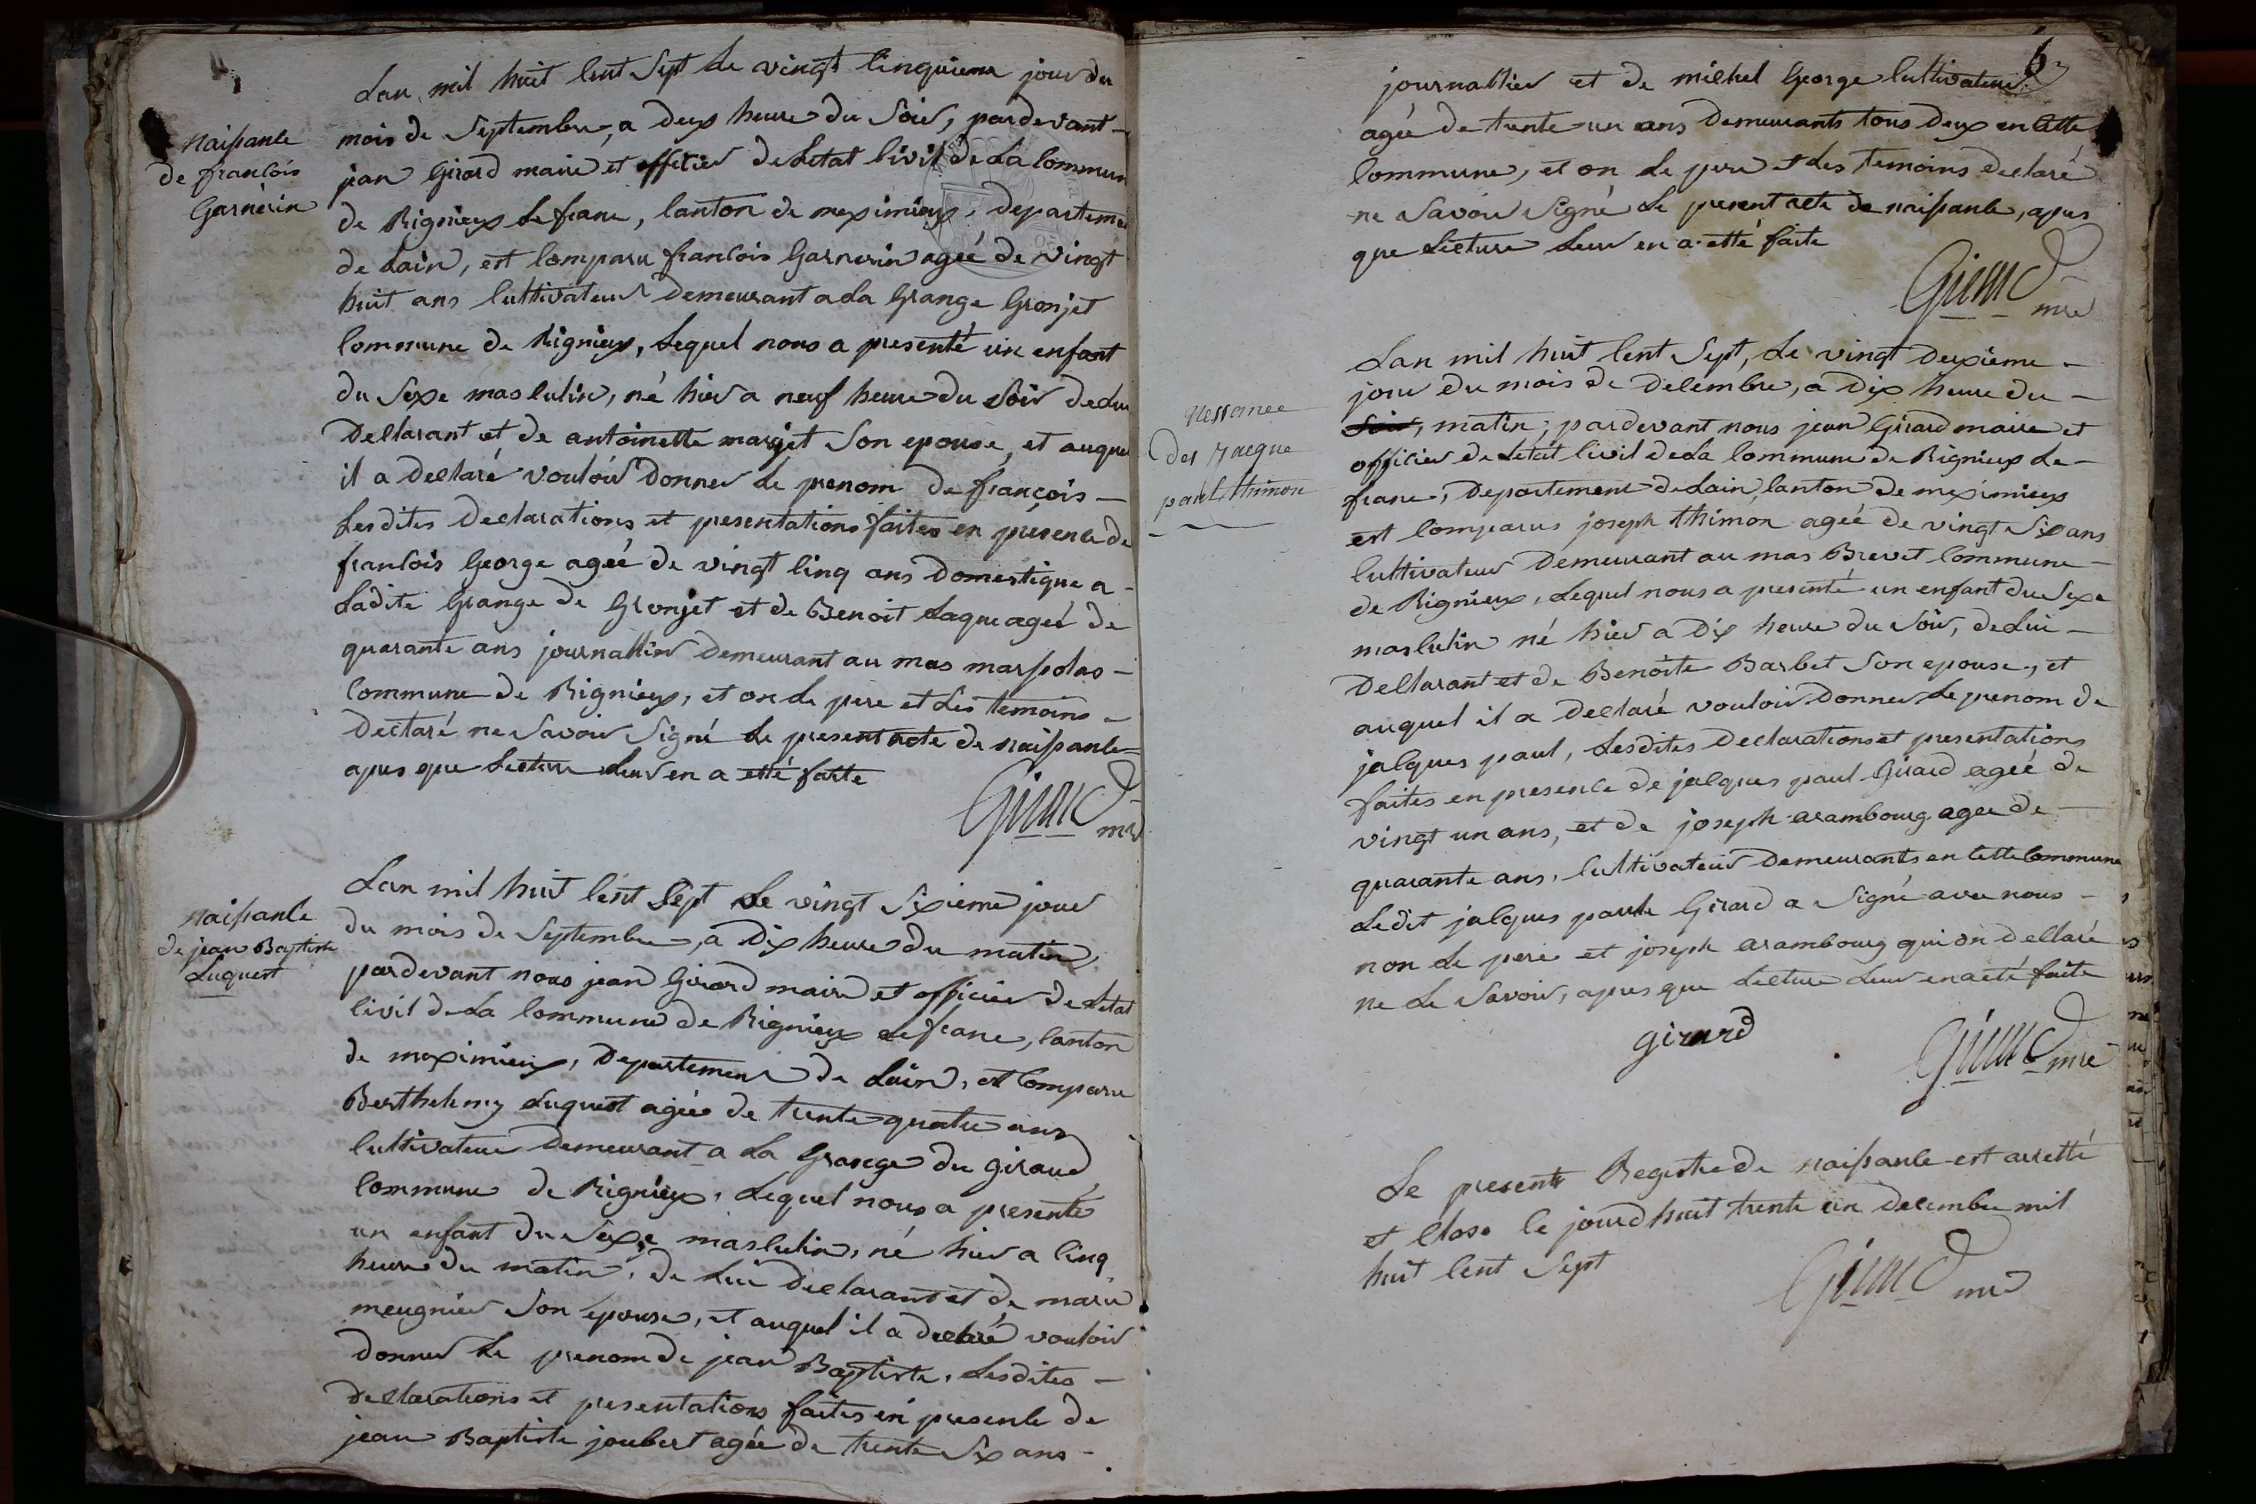 Lan mil huit Cent Sept Le vingt Cinquieme jour du
mois de Septembre, a deux heure du Soir, pardevant
jean Girard maire et officier de Letat Civil de La Commun
de Rignieux Le franc, Canton de meximieux, departeme
de Lain, est Comparu francois Garnerin ageé de vingt
huit ans Cultivateur Demeurant a La Grange Gronjet
Commune de Rignieux, Lequel nous a presenté un enfant
du Sexe masculin, né hier a neuf heure du Soir de Lui
Declarant et de antoinette marjet Son epouse, et auque
il a declaré vouloir Donner Le prenom de françois
Lesdites declarations et presentations faites en présence de
francois George ageé de vingt Cinq ans Domestique a
Ladite Grange de Gronjet et de Benoit Laque ageé de
quarante ans journallier Demeurant au mas marpolas
Commune de Rignieux, et on Le pere et Les temoins
declaré ne Savoir Signé Le present acte de naissance
apres que Lecture Leur en a etté faite
Girard mre
Naissance
de francois
Garnerin
Naissance
de jean Baptiste
Luquest
Lan mil huit Cent Sept Le vingt Sixieme jour
du mois de Septembre, a Dix heure du matin,
pardevant nous jean Girard maire et officier de Letat
Civil de La Commune de Rignieux Le franc, Canton
de meximieux, Departement de Lain, est Comparu
Berthelemy Luquest ageé de trente quatre ans
Cultivateur Demeurant a La Grange du Giraud
Commune de Rignieux, Lequel nous a presenté
un enfant du Sexe masculin, né hier a Cinq
heure du matin, de Lui Declarant et de marie
meugnier Son epouse, et auquel il a declaré vouloir
donner Le prenom de jean Baptiste, Lesdites
declarations et presentations faites en presence de
jean Baptiste joubert ageé de trente Six ans
6
journallier et de michel George Cultivateur
ageé de trente un ans Demeurants tous deux en Cette
Commune, et on Le pere et Les temoins declaré
ne Savoir Signé Le present acte de naissance, apres
que Lecture Leur en a etté faite
Girard mre
Nessance
des Jacque
paul thimon
Lan mil huit Cent Sept, Le vingt deuxieme
jour du mois de Decembre, a Dix heure du
Soir, matin, pardevant nous jean Girard maire et
officier de Letat Civil de La Commune de Rignieux Le
franc, Departement de Lain, Canton de meximieux
est Comparus joseph thimon ageé de vingt Six ans
Cultivateur Demeurant au mas Brevet Commune
de Rignieux, Lequel nous a presenté un enfant du Sexe
masculin né hier a Dix heure du Soir, de Lui
Declarant et de Benoite Barbet Son epouse, et
auquel il a declaré vouloir Donner Le prenom de
jacques paul, Lesdites Declarations et presentations
faites en presence de jacques paul Girard ageé de
vingt un ans, et de joseph arambourg ageé de
quarante ans, Cultivateur Demeurants en Cette Commune
Ledit jacques paule Girard a Signé avec nous
non Le pere et joseph arambourg qui on declaré
ne Le Savoir, apres que Lecture Leur en a eté faite
girard
Girard mre
Le present Registre de naissance est arretté
et Close le jourd huit trente un decembre mil
huit Cent Sept
Girard mre